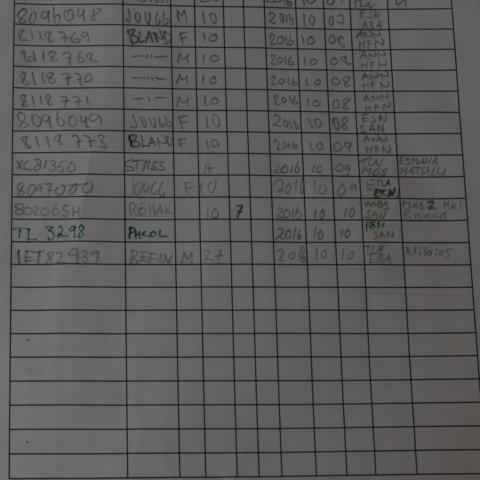 8096048 JOUGG M 10 2016 10 07 ESN
8118769 BLAND F 10 2016 10 08 ANN HFN
8118768 —"— M 10 2016 10 08 ANN HFN
8118770 —"— M 10 2016 10 08 ANN HFN
8118771 —"— M 10 2016 10 08 ANN HFN
8096049 JOUGG F 10 2016 10 08 ESN SAN
8118773 BLAND F 10 2016 10 09 ANN HFN
XC81350 STMES 2016 10 09 TLN MOS ESTONIA MATSALU
8097000 JOUGG F 10 2016 10 09
802065H ROHAK 10 7 2016 10 10 MOS SAN Finland
TL 3298 PHCOL 2016 10 10 SAN
1ET82939 BEFIN M 2+ 2016 10 10 TLN